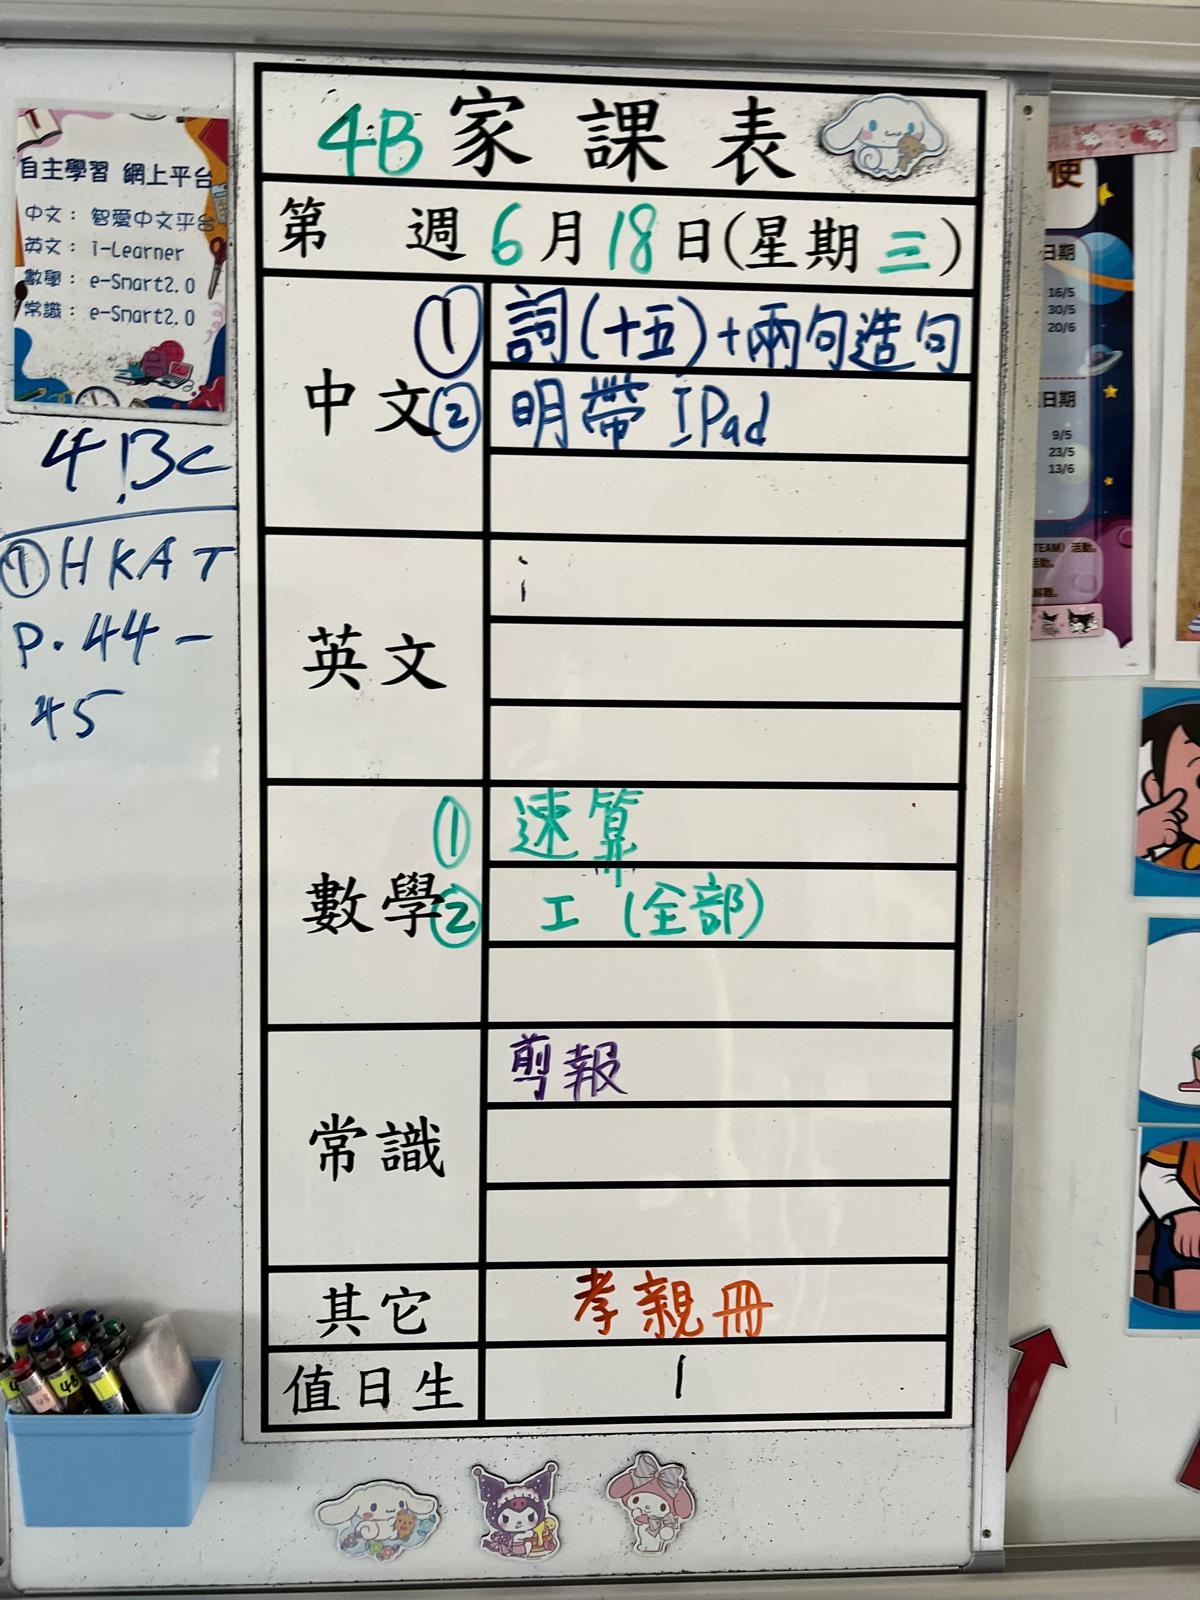 4B 家課表
第 週 6月18日(星期三)
中文
① 詞(十五)+兩句造句
② 明帶 IPad
英文
數學
① 速算
② 工 (全部)
常識
剪報
其它
孝親冊
值日生
1
自主學習 網上平台
中文： 智愛中文平台
英文： i-Learner
數學： e-Smart2.0
常識： e-Smart2.0
4Bc
① HKAT
P. 44-
45
使
日期
16/5
30/5
20/6
日期
9/5
23/5
13/6
TEAM) 活動。
活動。
4B